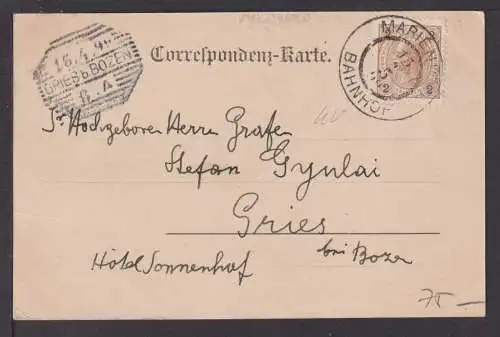 16.4.9
GRIES b. BOZEN
Correspondenz-Karte.
MARIE
BAHNHOF
2
Sr Hochgeboren Herrn Grafen
Stefan Gyulai
Gries
bei Bozen
Hôtel Sonnenhof
75 —